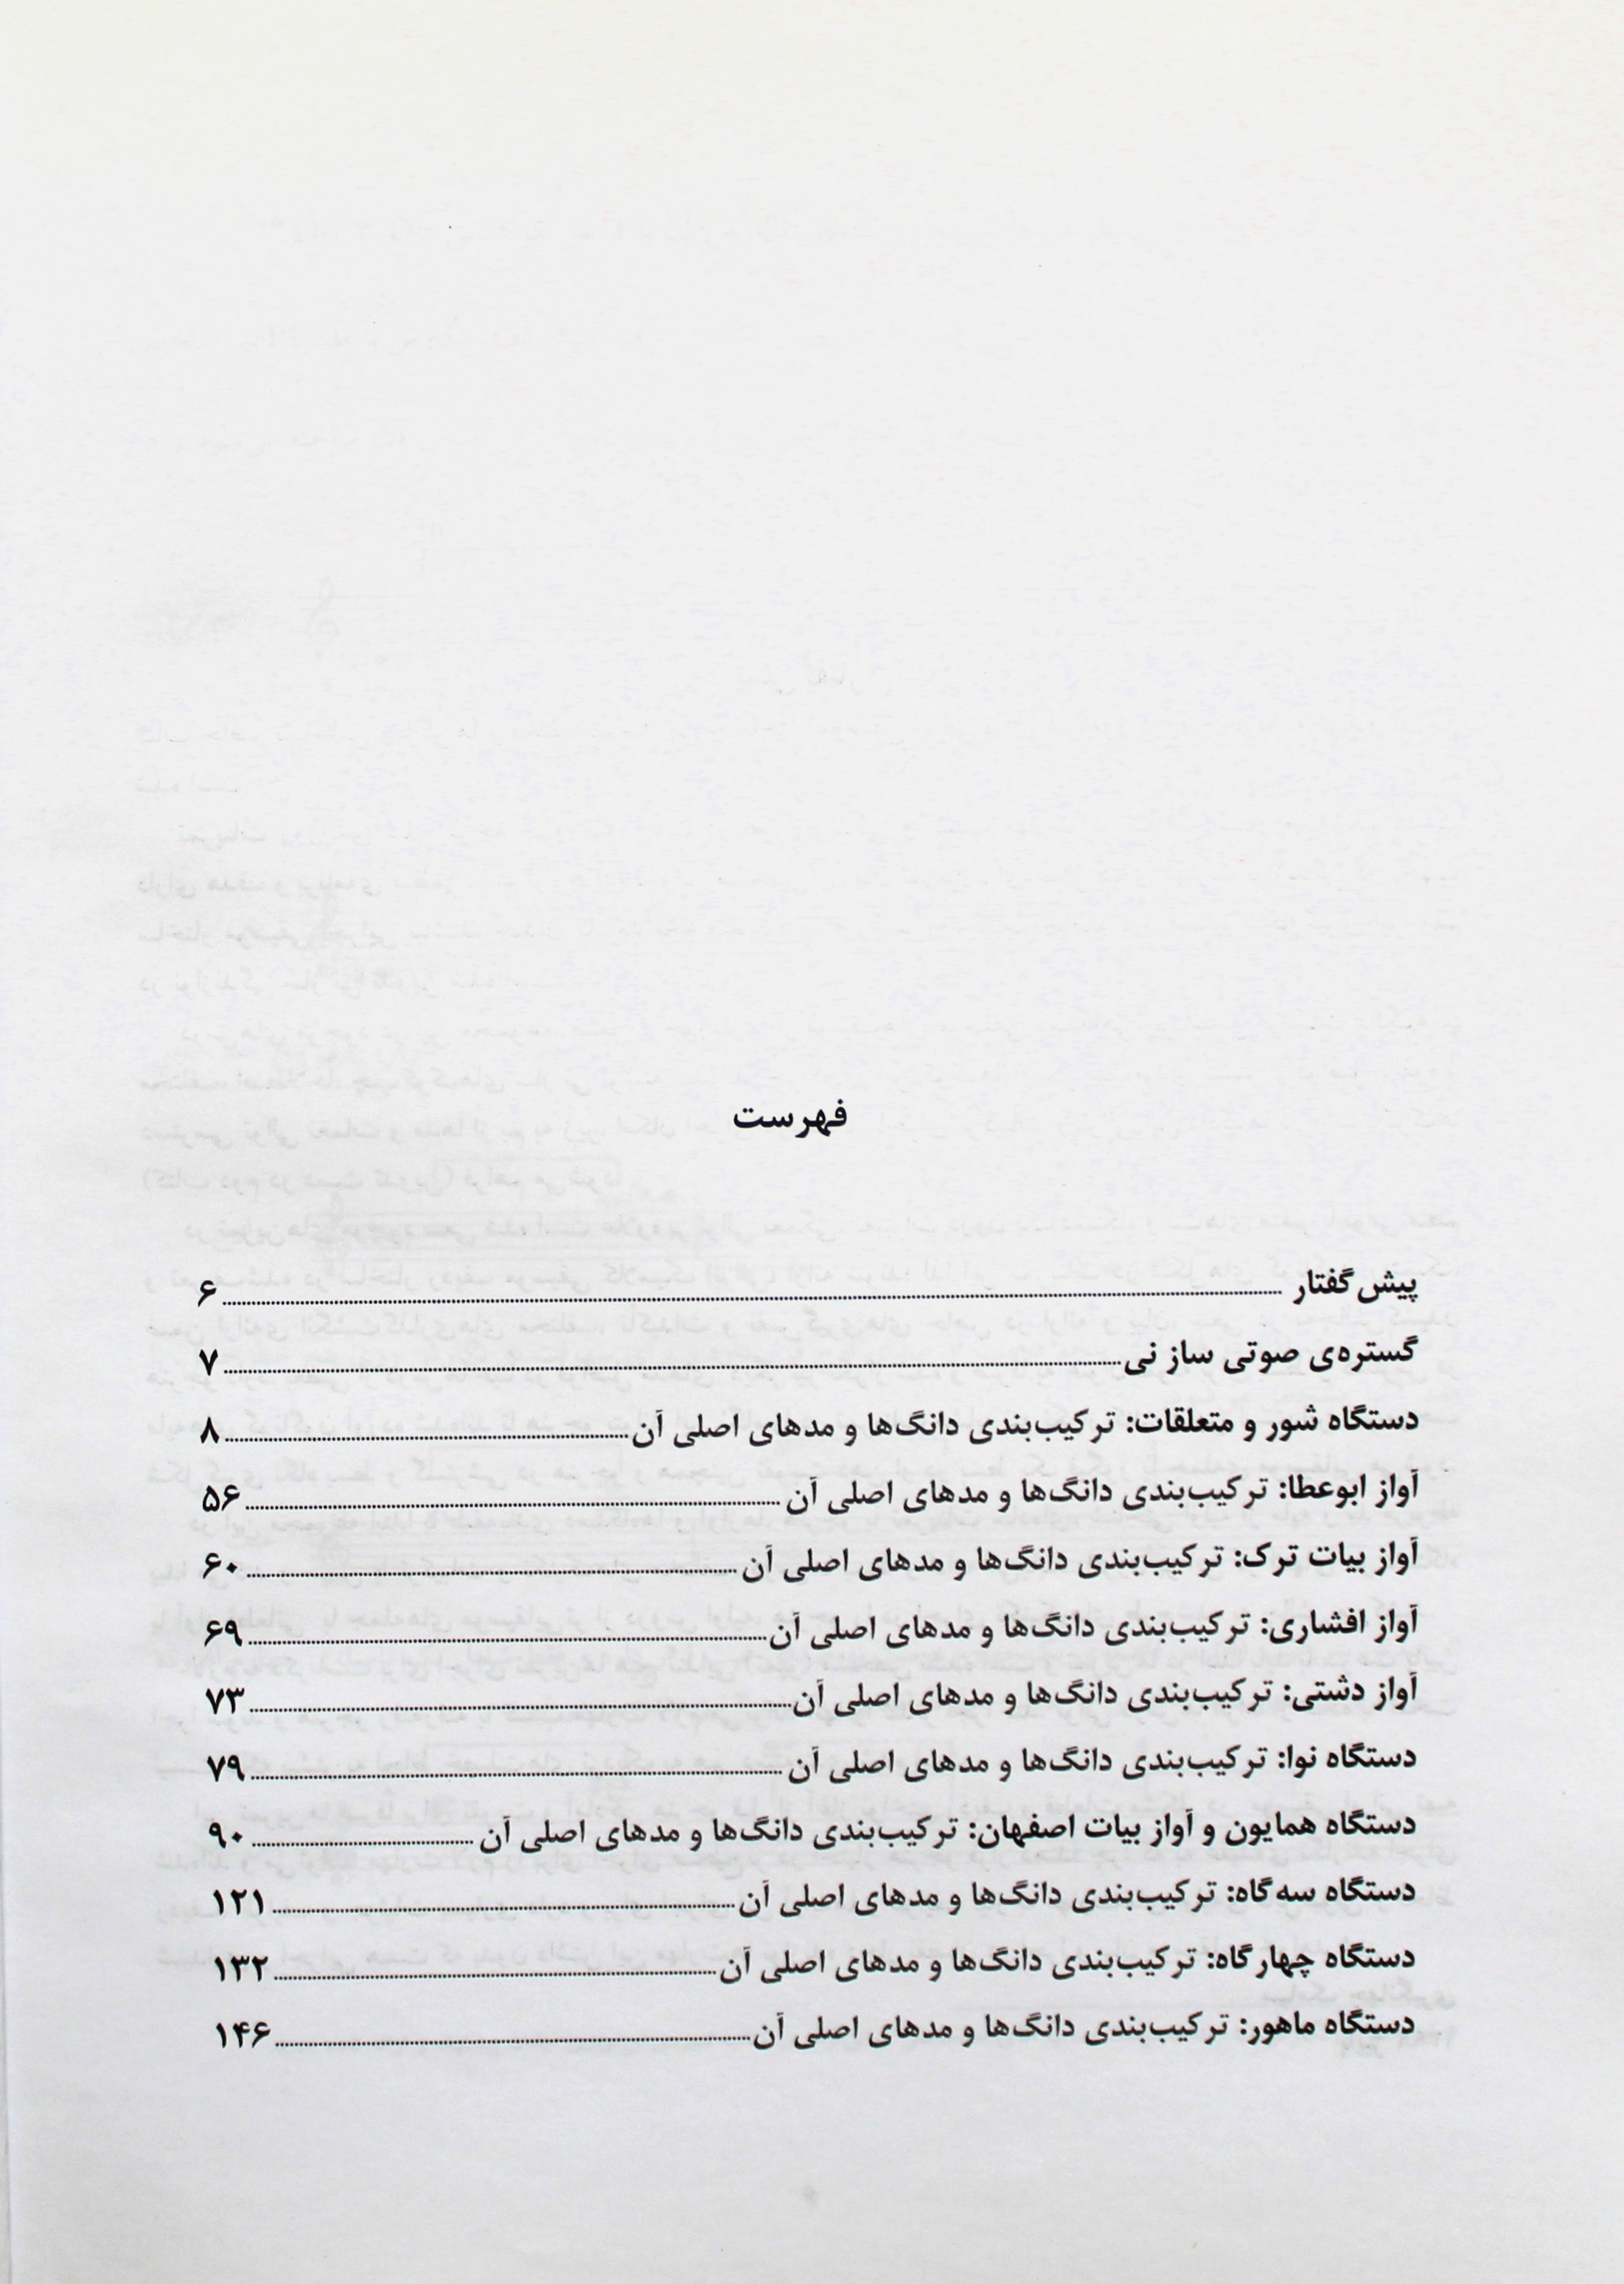 فهرست
پیش‌گفتار ۶
گستره‌ی صوتی ساز نی ۷
دستگاه شور و متعلقات: ترکیب‌بندی دانگ‌ها و مدهای اصلی آن ۸
آواز ابوعطا: ترکیب‌بندی دانگ‌ها و مدهای اصلی آن ۵۶
آواز بیات ترک: ترکیب‌بندی دانگ‌ها و مدهای اصلی آن ۶۰
آواز افشاری: ترکیب‌بندی دانگ‌ها و مدهای اصلی آن ۶۹
آواز دشتی: ترکیب‌بندی دانگ‌ها و مدهای اصلی آن ۷۳
دستگاه نوا: ترکیب‌بندی دانگ‌ها و مدهای اصلی آن ۷۹
دستگاه همایون و آواز بیات اصفهان: ترکیب‌بندی دانگ‌ها و مدهای اصلی آن ۹۰
دستگاه سه‌گاه: ترکیب‌بندی دانگ‌ها و مدهای اصلی آن ۱۲۱
دستگاه چهارگاه: ترکیب‌بندی دانگ‌ها و مدهای اصلی آن ۱۳۲
دستگاه ماهور: ترکیب‌بندی دانگ‌ها و مدهای اصلی آن ۱۴۶